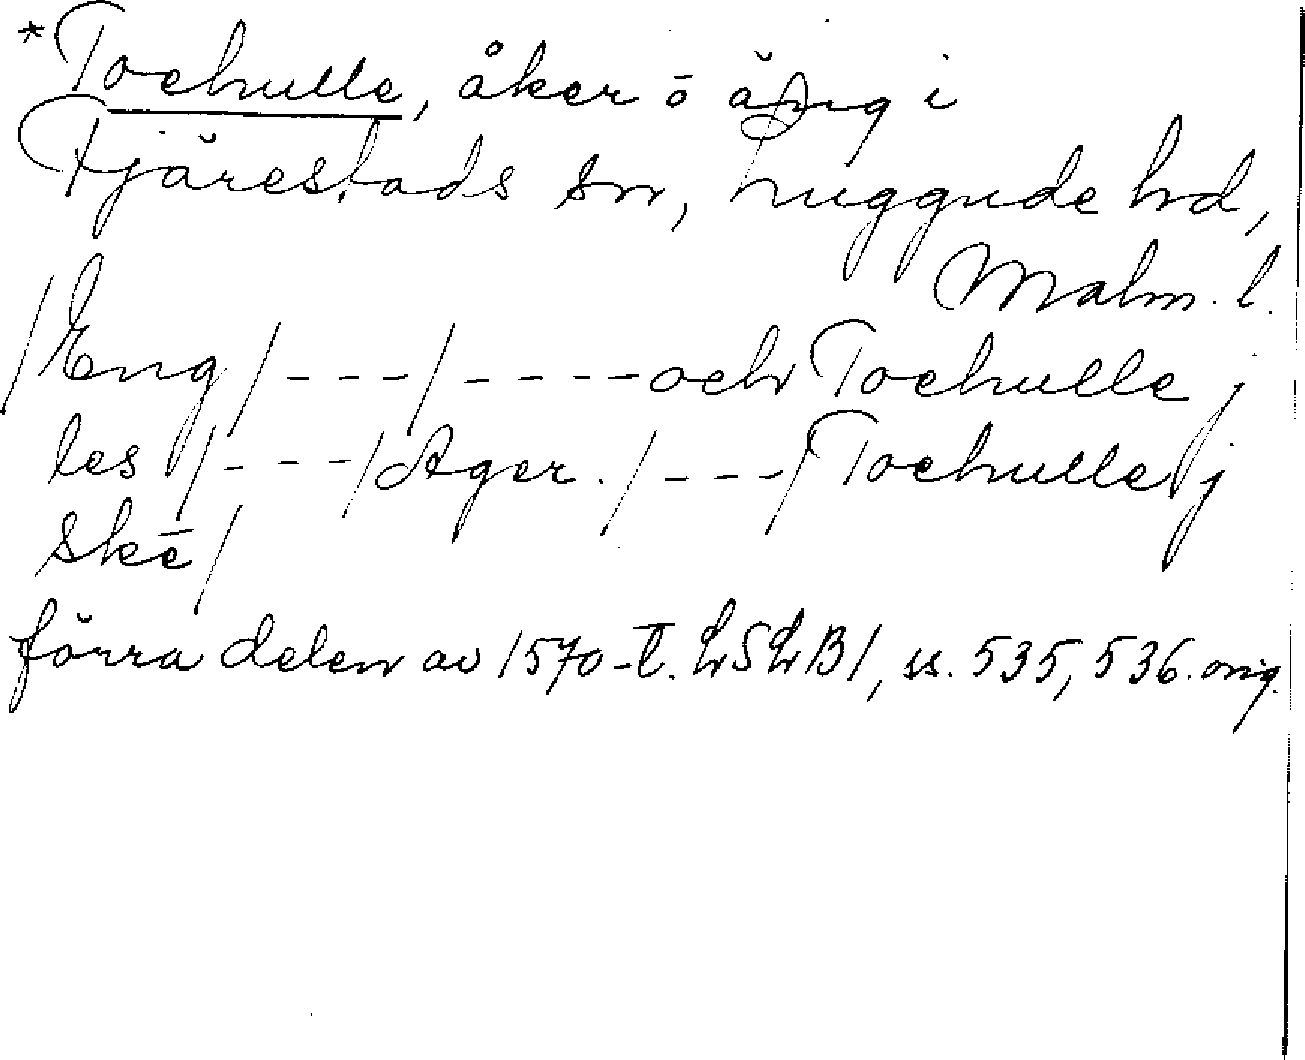 *Toehulle, åker o äng i
Fjärestads sn, Luggude hd,
Malm. l.
/Eng/ - - - / - - - - och Toehulle j
les / - - - / Ager. / - - - / Toehulle j
skē/
förra delen av 1570-t. LSLB1, ss. 535, 536. orig.